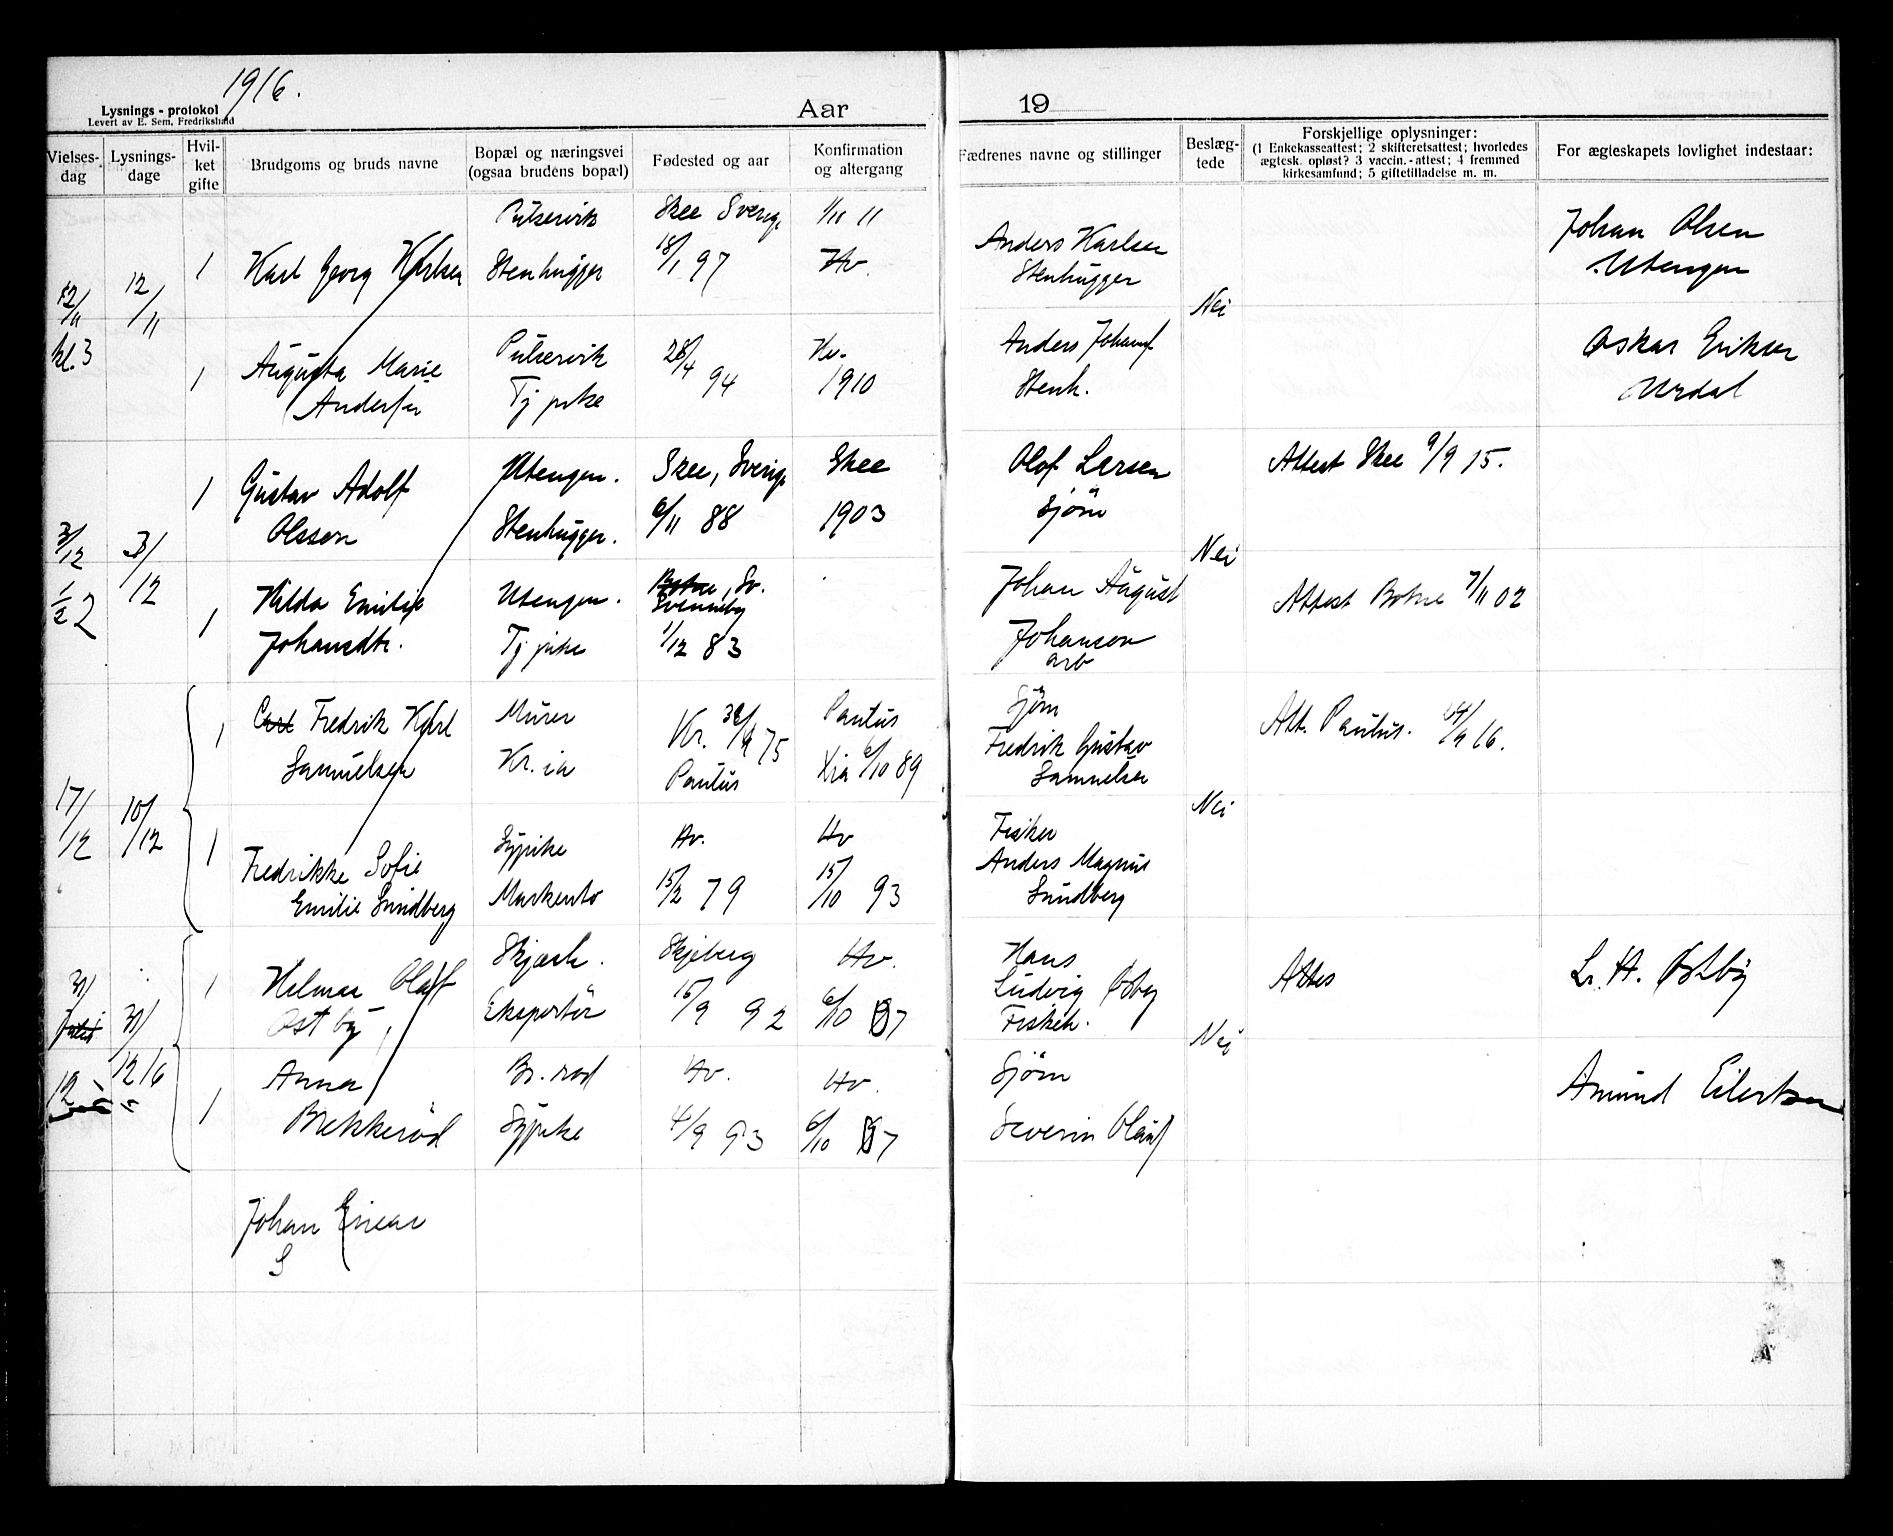 1916.
Lysnings-protokol
Levert av E. Sem, Fredrikshald
Aar
19
Vielses-dag
Lysnings-dage
Hvil-ket gifte
Brudgoms og bruds navne
Bopæl og næringsvei (ogsaa brudens bopæl)
Fødested og aar
Konfirmation og altergang
Fædrenes navne og stillinger
Beslæg-tede
Forskjellige oplysninger:
(1 Enkekasseattest; 2 skifteretsattest; hvorledes
ægtesk. opløst? 3 vaccin.-attest; 4 fremmed
kirkesamfund; 5 giftetilladelse m. m.
For ægteskapets lovlighet indestaar:
12/11 kl. 3
12/11
1
Karl Georg Karlsen
Stenhugger
Skee Sverig
18/1 97
1/11 11
Hv.
Anders Karlsen
Stenhugger
Nei
Johan Olsen
Utengen
1
Augusta Marie
Tj pike
28/4 94
Hv.
1910
Anders
Stenh.
Oskar Eriksen
Urdal
3/12
1/2 2
3/12
1
Gustav Adolf
Olsson
Utengen.
Stenhugger.
Skee, Sverig
6/11 88
Skee
1903
Olof Larsen
Sjøm
Nei
Attest Skee 9/9 15.
1
Hilda Emilie
Johansdtr.
Utengen.
Tj pike
Botne, Sv.
Svenneby
1/12 83
Johan August
Johanson
arb
Attest Botne 7/11 02
17/12
10/12
1
Carl Fredrik Karl
Samuelsen
Murer
Kr.ia
Kr. 75
Paulus
Paulus
Kria 6/10 89
Sjøm
Fredrik Gustav
Samuelsen
Nei
Att. Paulus. 16.
1
Fredrikke Sofie
Emilie Sundberg
Sypike
Hv.
15/2 79
Hv
15/10 93
Fisker
Anders Magnus
Sundberg
31/
12
31/
12 16
1
Hilmar Olaf
Østby
Skjærh.
Eksportør
Skjeberg
15/9 92
Hv.
6/10 07
Hans
Ludvig Østby
Fiskeh.
Nei
Attes
L. H. Østby
1
Anna
Brekkerød
Br. rød
Sypike
Hv.
4/9 93
Hv.
6/10 07
Sjøm
Severin Olaus
Amund Eilertsen
Johan Einar
S